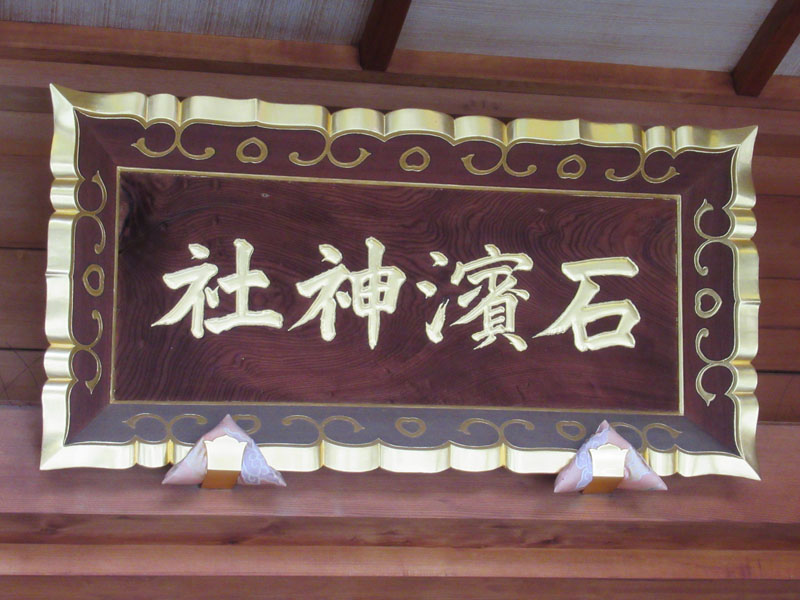 石濱神社